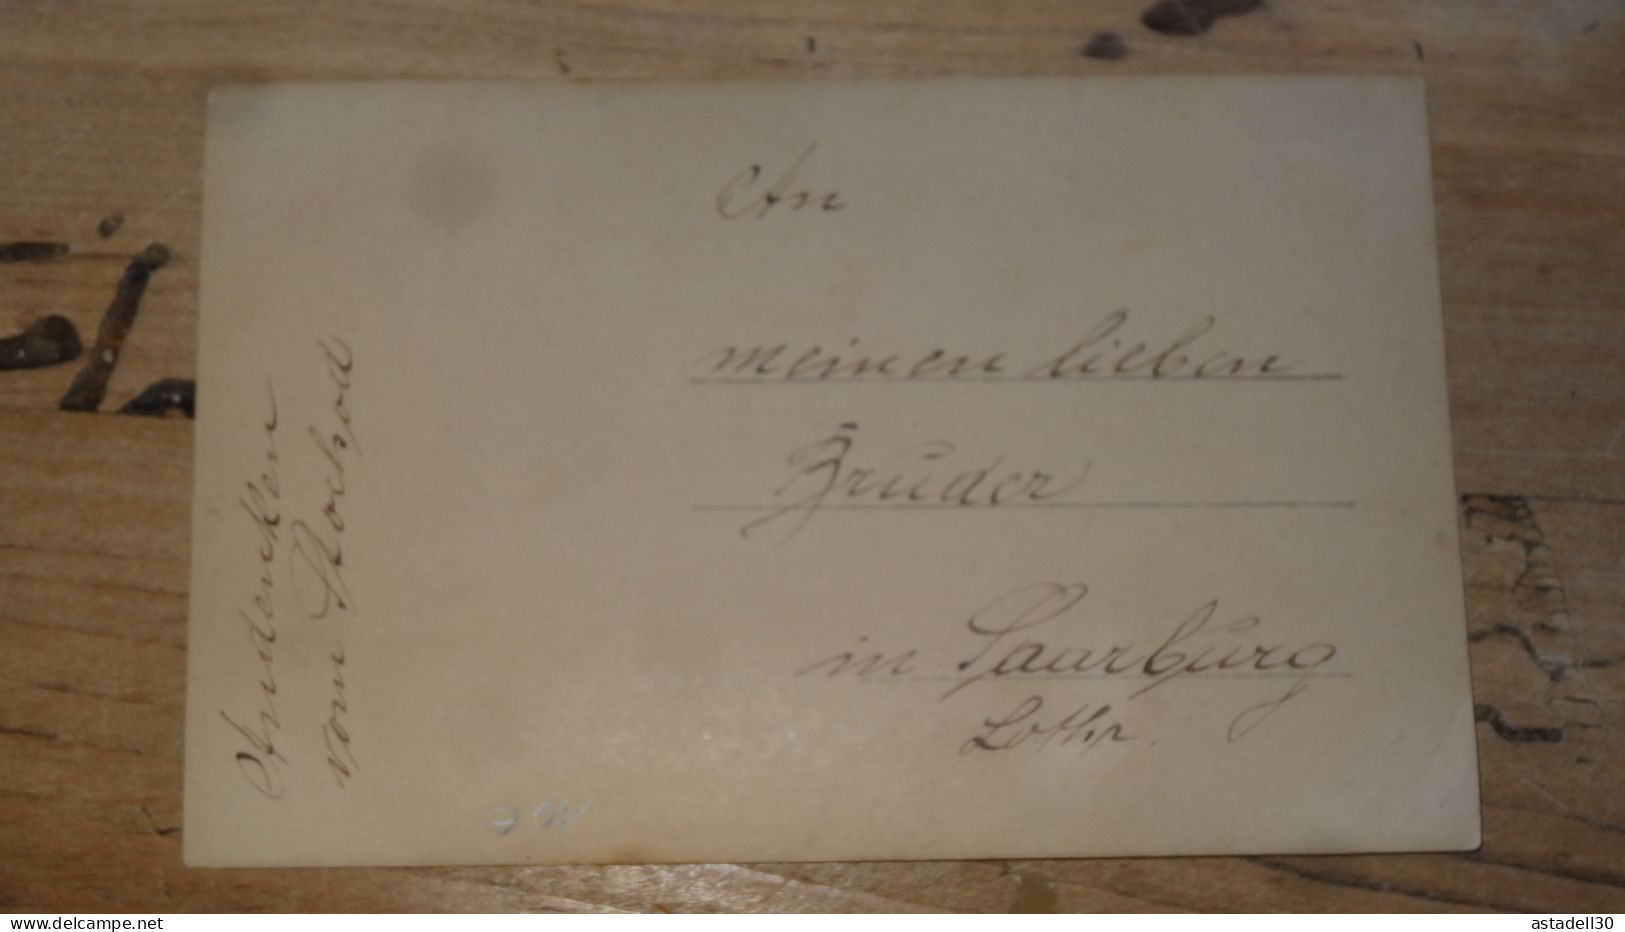 An
meinen lieben
Bruder
in Saarburg
Lothr.
Andenken
vom Stochod
delcampe.net
astadell30